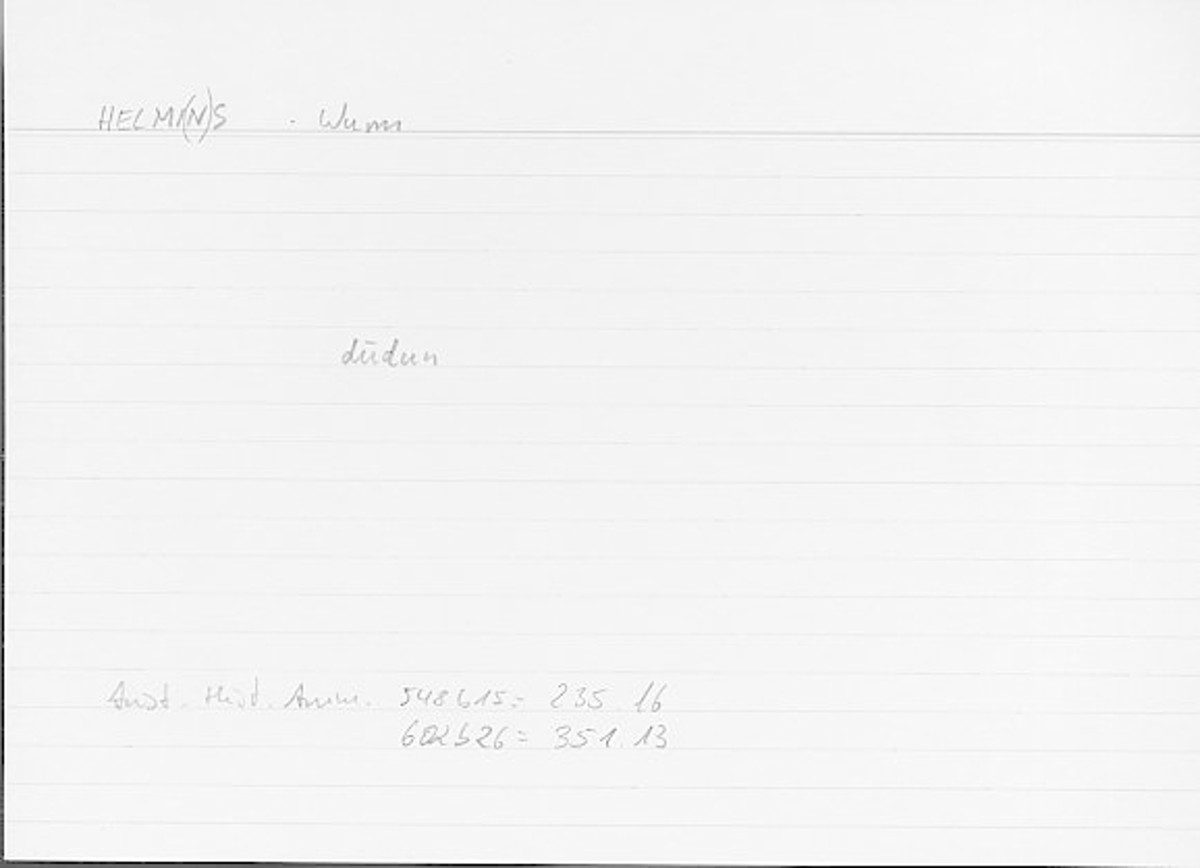 HELMI(N)S - Wurm
dūdun
Arist. Hist. Anim. 548b15 = 235.16
602b26 = 351.13